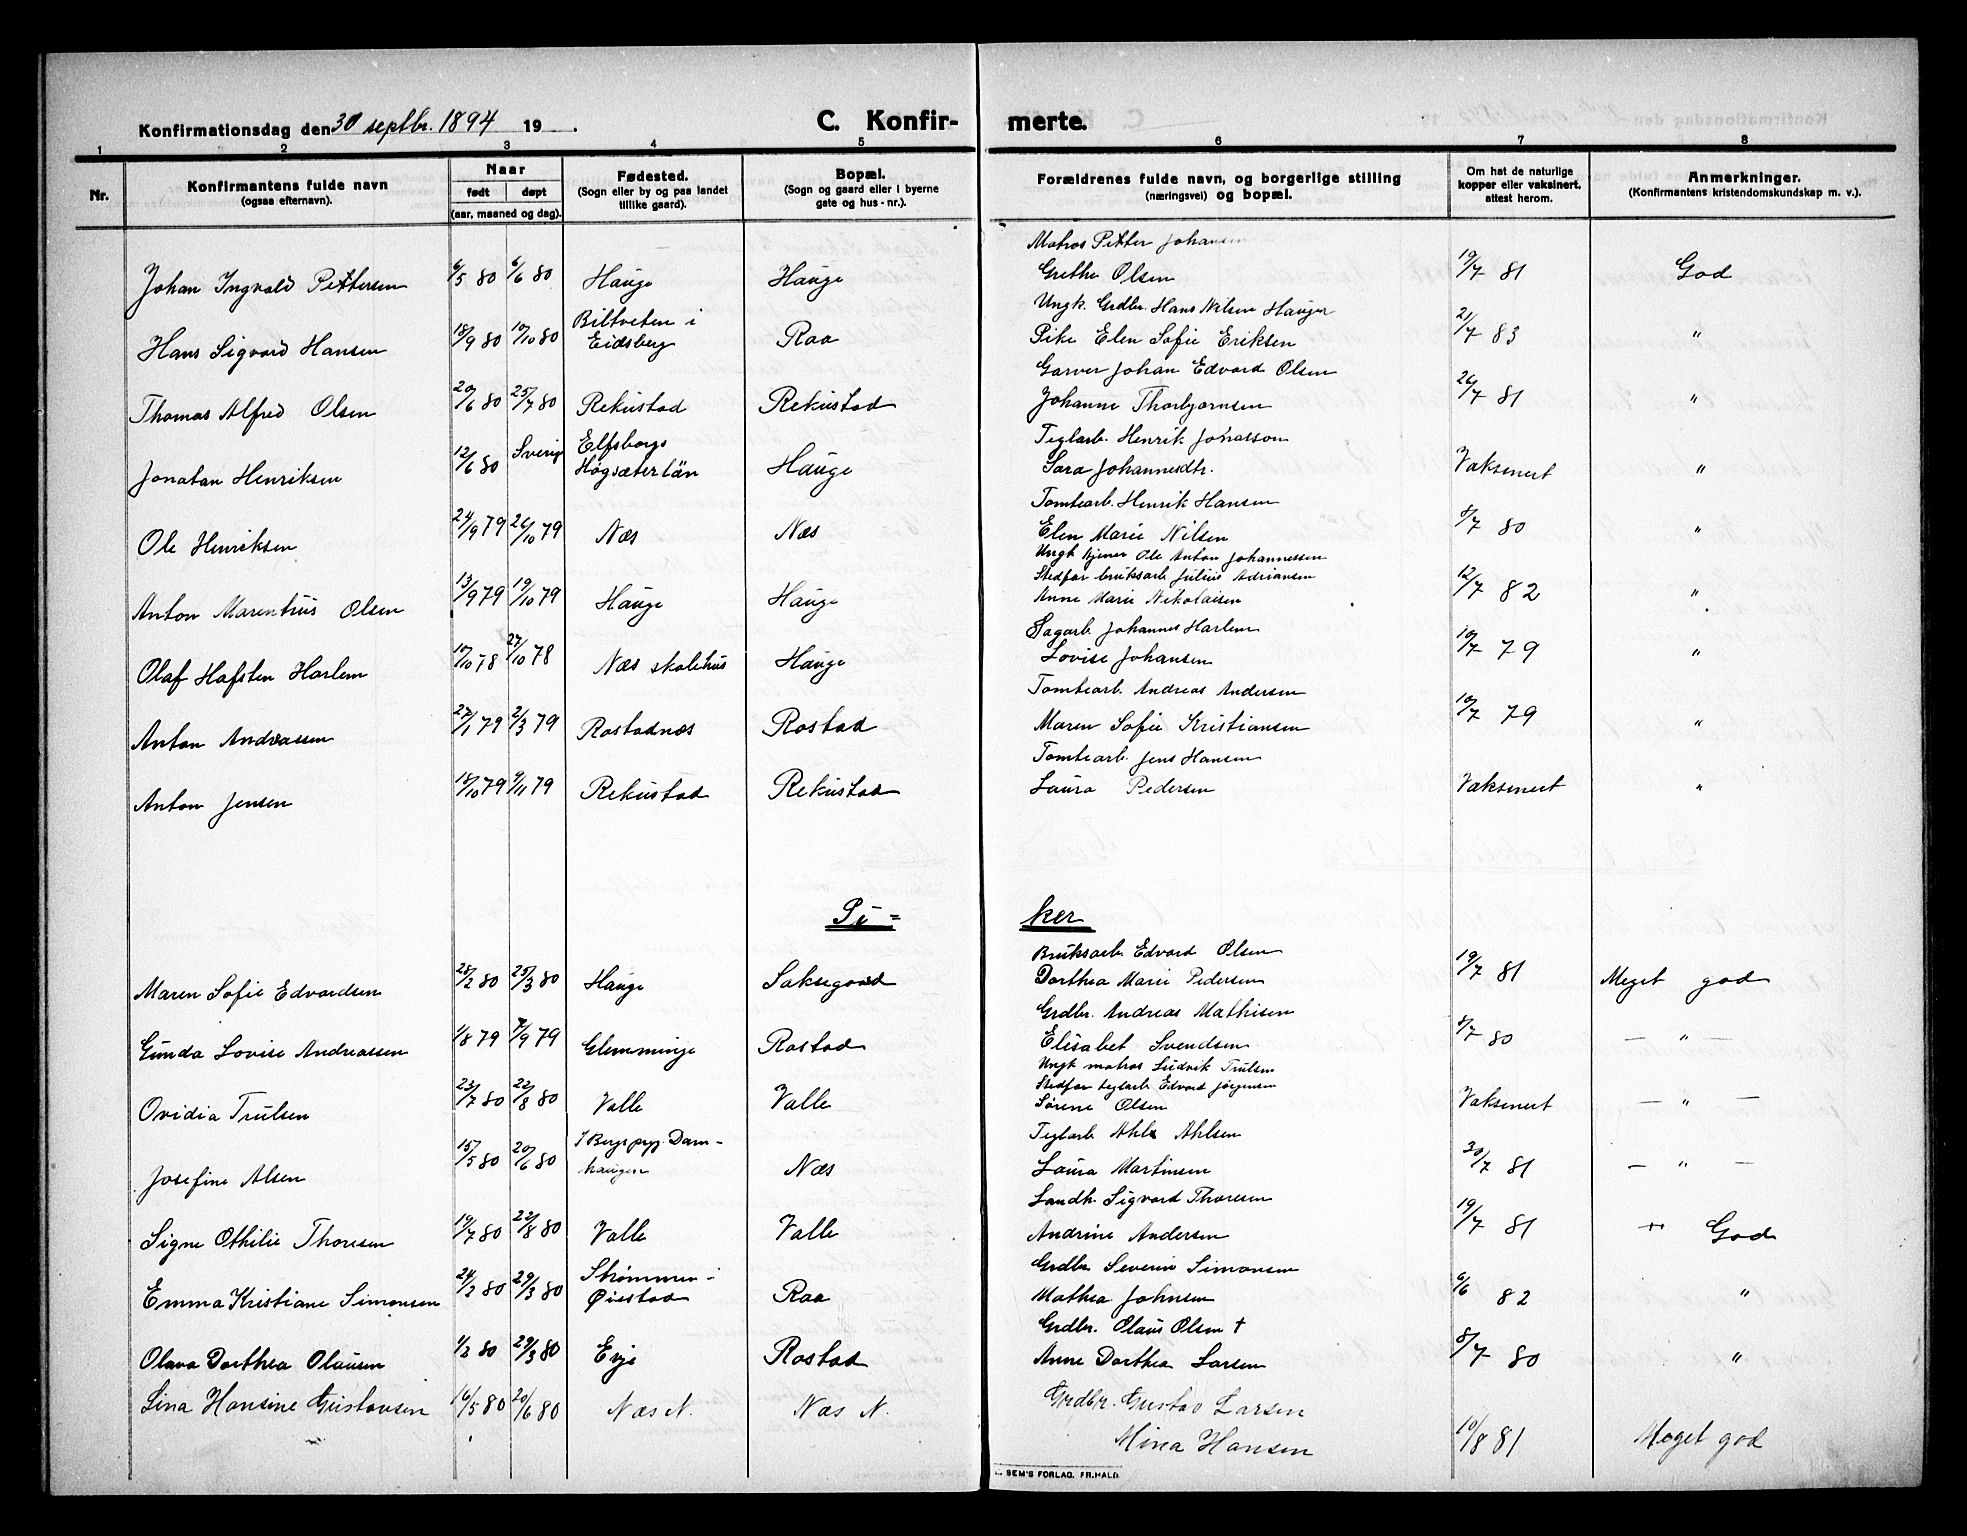 Konfirmationsdag den 30 septbr. 1894 19 .
C. Konfir- merte.
1 2 3 4 5 6 7 8
Nr.
Konfirmantens fulde navn
(ogsaa efternavn).
Naar
født døpt
(aar, maaned og dag).
Fødested.
(Sogn eller by og paa landet
tillike gaard).
Bopæl.
(Sogn og gaard eller i byerne
gate og hus-nr.).
Forældrenes fulde navn, og borgerlige stilling
(næringsvei) og bopæl.
Om hat de naturlige
kopper eller vaksinert,
attest herom.
Anmerkninger.
(Konfirmantens kristendomskundskap m. v.).
Matros Petter Johansen
Johan Ingvald Pettersen 6/5 80 6/6 80 Hauge Hauge Grethe Olsen 19/7 81 God
Biltveten i Ungk. Grdbr. Hans Nilsen Hauger
Hans Sigvard Hansen 18/9 80 17/10 80 Eidsberg Raa Pike Elen Sofie Eriksen 21/7 83 "
Garver Johan Edvard Olsen
Thomas Alfred Olsen 20/6 80 25/7 80 Rekustad Rekustad Johanne Thorbjørnsen 26/7 81 "
Elfsborgs Teglarb. Henrik Jonasson
Jonatan Henriksen 12/6 80 Sverig Høgsæter län Hauge Sara Johannesdtr. Vaksenert "
Tomtearb. Henrik Hansen
Ole Henriksen 24/9 79 26/10 79 Næs Næs Elen Marie Nilsen 8/7 80 "
Ungk. Ole Anton Johannessen
Stedfar bruksarb Julius Adriansen
Anton Marentius Olsen 13/9 79 19/10 79 Hauge Hauge Anne Marie Nikolaisen 12/7 82 "
Sagarb. Johannes Harlem
Olaf Hafsten Harlem 17/10 78 27/10 78 Næs skolehus Hauge Lovise Johansen 10/7 79 "
Tomtearb. Andreas Andersen
Anton Andreassen 27/1 79 2/3 79 Rostadnæs Rostad Maren Sofie Kristiansen 10/7 79 "
Tomtearb. Jens Hansen
Anton Jensen 18/10 79 9/11 79 Rekustad Rekustad Laura Pedersen Vaksenert "
Pi- ker
Bruksarb Edvard Olsen
Maren Sofie Edvardsen 28/2 80 25/3 80 Hauge Saksegaard Dorthea Marie Pedersen 19/7 81 Meget god
Grdbr. Andreas Mathisen
Gunda Lovise Andreassen 1/8 79 7/9 79 Glemminge Rostad Elisabet Svendsen 8/7 80 — " —
Ungk matros Ludvik Trulsen
Stedfar teglarb Edvard Jørgensen
Ovidia Trulsen 23/7 80 22/8 80 Valle Valle Sørene Olsen Vaksenert — " —
I Bergs pgj. Dam- Teglarb Ahle Ahlsen
Josefine Alsen 15/5 80 20/6 80 haugen Næs Laura Martinsen 30/7 81 — " —
Landh. Sigvard Thoresen
Signe Othilie Thoresen 19/7 80 22/8 80 Valle Valle Andrine Andersen 19/7 81 " God
Strømmen i Grdbr Severin Simonsen
Emma Kristiane Simonsen 24/2 80 29/3 80 Øiestad Raa Mathea Johnsen 6/6 82 "
Grdbr. Olaus Olsen †
Olava Dorthea Olausen 1/2 80 29/3 80 Evje Rostad Anne Dorthea Larsen 8/7 80 "
Lina Hansine Gustavsen 16/5 80 20/6 80 Næs N. Næs N. Grdbr. Gustav Larsen
Mina Hansen 10/8 81 Meget god
SEM'S FORLAG, FR.HALD